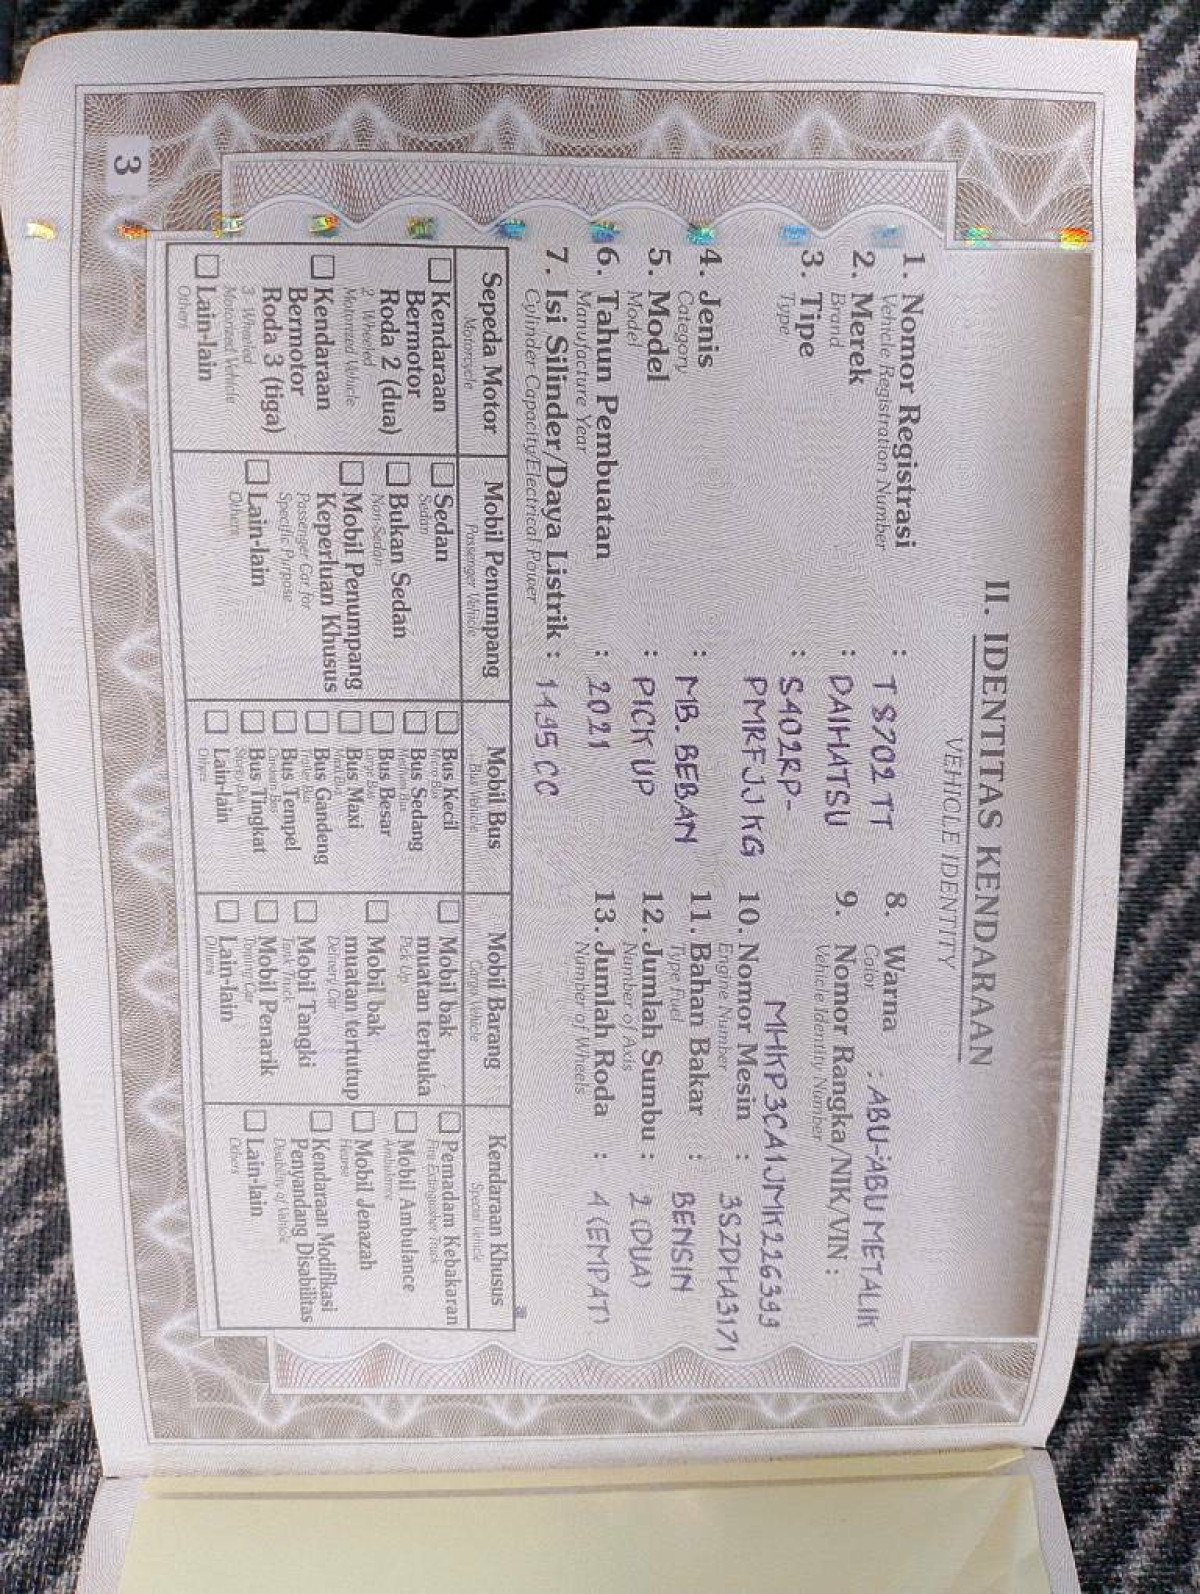 II. IDENTITAS KENDARAAN
VEHICLE IDENTITY
1. Nomor Registrasi : T 8702 TT
Vehicle Registration Number
2. Merek : DAIHATSU
Brand
3. Tipe : S402RP-
Type
PMRFJJ KG
4. Jenis : MB. BEBAN
Category
5. Model : PICK UP
Model
6. Tahun Pembuatan : 2021
Manufacture Year
7. Isi Silinder/Daya Listrik : 1495 CC
Cylinder Capacity/Electrical Power
8. Warna : ABU-ABU METALIK
Color
9. Nomor Rangka/NIK/VIN :
Vehicle Identity Number
MHKP3CA1JMK226399
10. Nomor Mesin : 3SZDHA3171
Engine Number
11. Bahan Bakar : BENSIN
Type Fuel
12. Jumlah Sumbu : 2 (DUA)
Number of Axis
13. Jumlah Roda : 4 (EMPAT)
Number of Wheels
Sepeda Motor
Motorcycle
Kendaraan
Bermotor
Roda 2 (dua)
2 Wheeled
Motorized Vehicle
Kendaraan
Bermotor
Roda 3 (tiga)
3 Wheeled
Motorized Vehicle
Lain-lain
Others
Mobil Penumpang
Passenger Vehicle
Sedan
Sedan
Bukan Sedan
Non Sedan
Mobil Penumpang
Keperluan Khusus
Passenger Car for
Specific Purpose
Lain-lain
Others
Mobil Bus
Bus Vehicle
Bus Kecil
Micro Bus
Bus Sedang
Medium Bus
Bus Besar
Large Bus
Bus Maxi
Maxi Bus
Bus Gandeng
Trailer Bus
Bus Tempel
Bus Tingkat
Lain-lain
Others
Mobil Barang
Cargo Vehicle
Mobil bak
muatan terbuka
Pick Up
Mobil bak
muatan tertutup
Delivery Car
Mobil Tangki
Tank Truck
Mobil Penarik
Towing Car
Lain-lain
Others
Kendaraan Khusus
Special Vehicle
Pemadam Kebakaran
Fire Extinguisher Truck
Mobil Ambulance
Ambulance
Mobil Jenazah
Hearse
Kendaraan Modifikasi
Penyandang Disabilitas
Disability of Vehicle
Lain-lain
Others
3